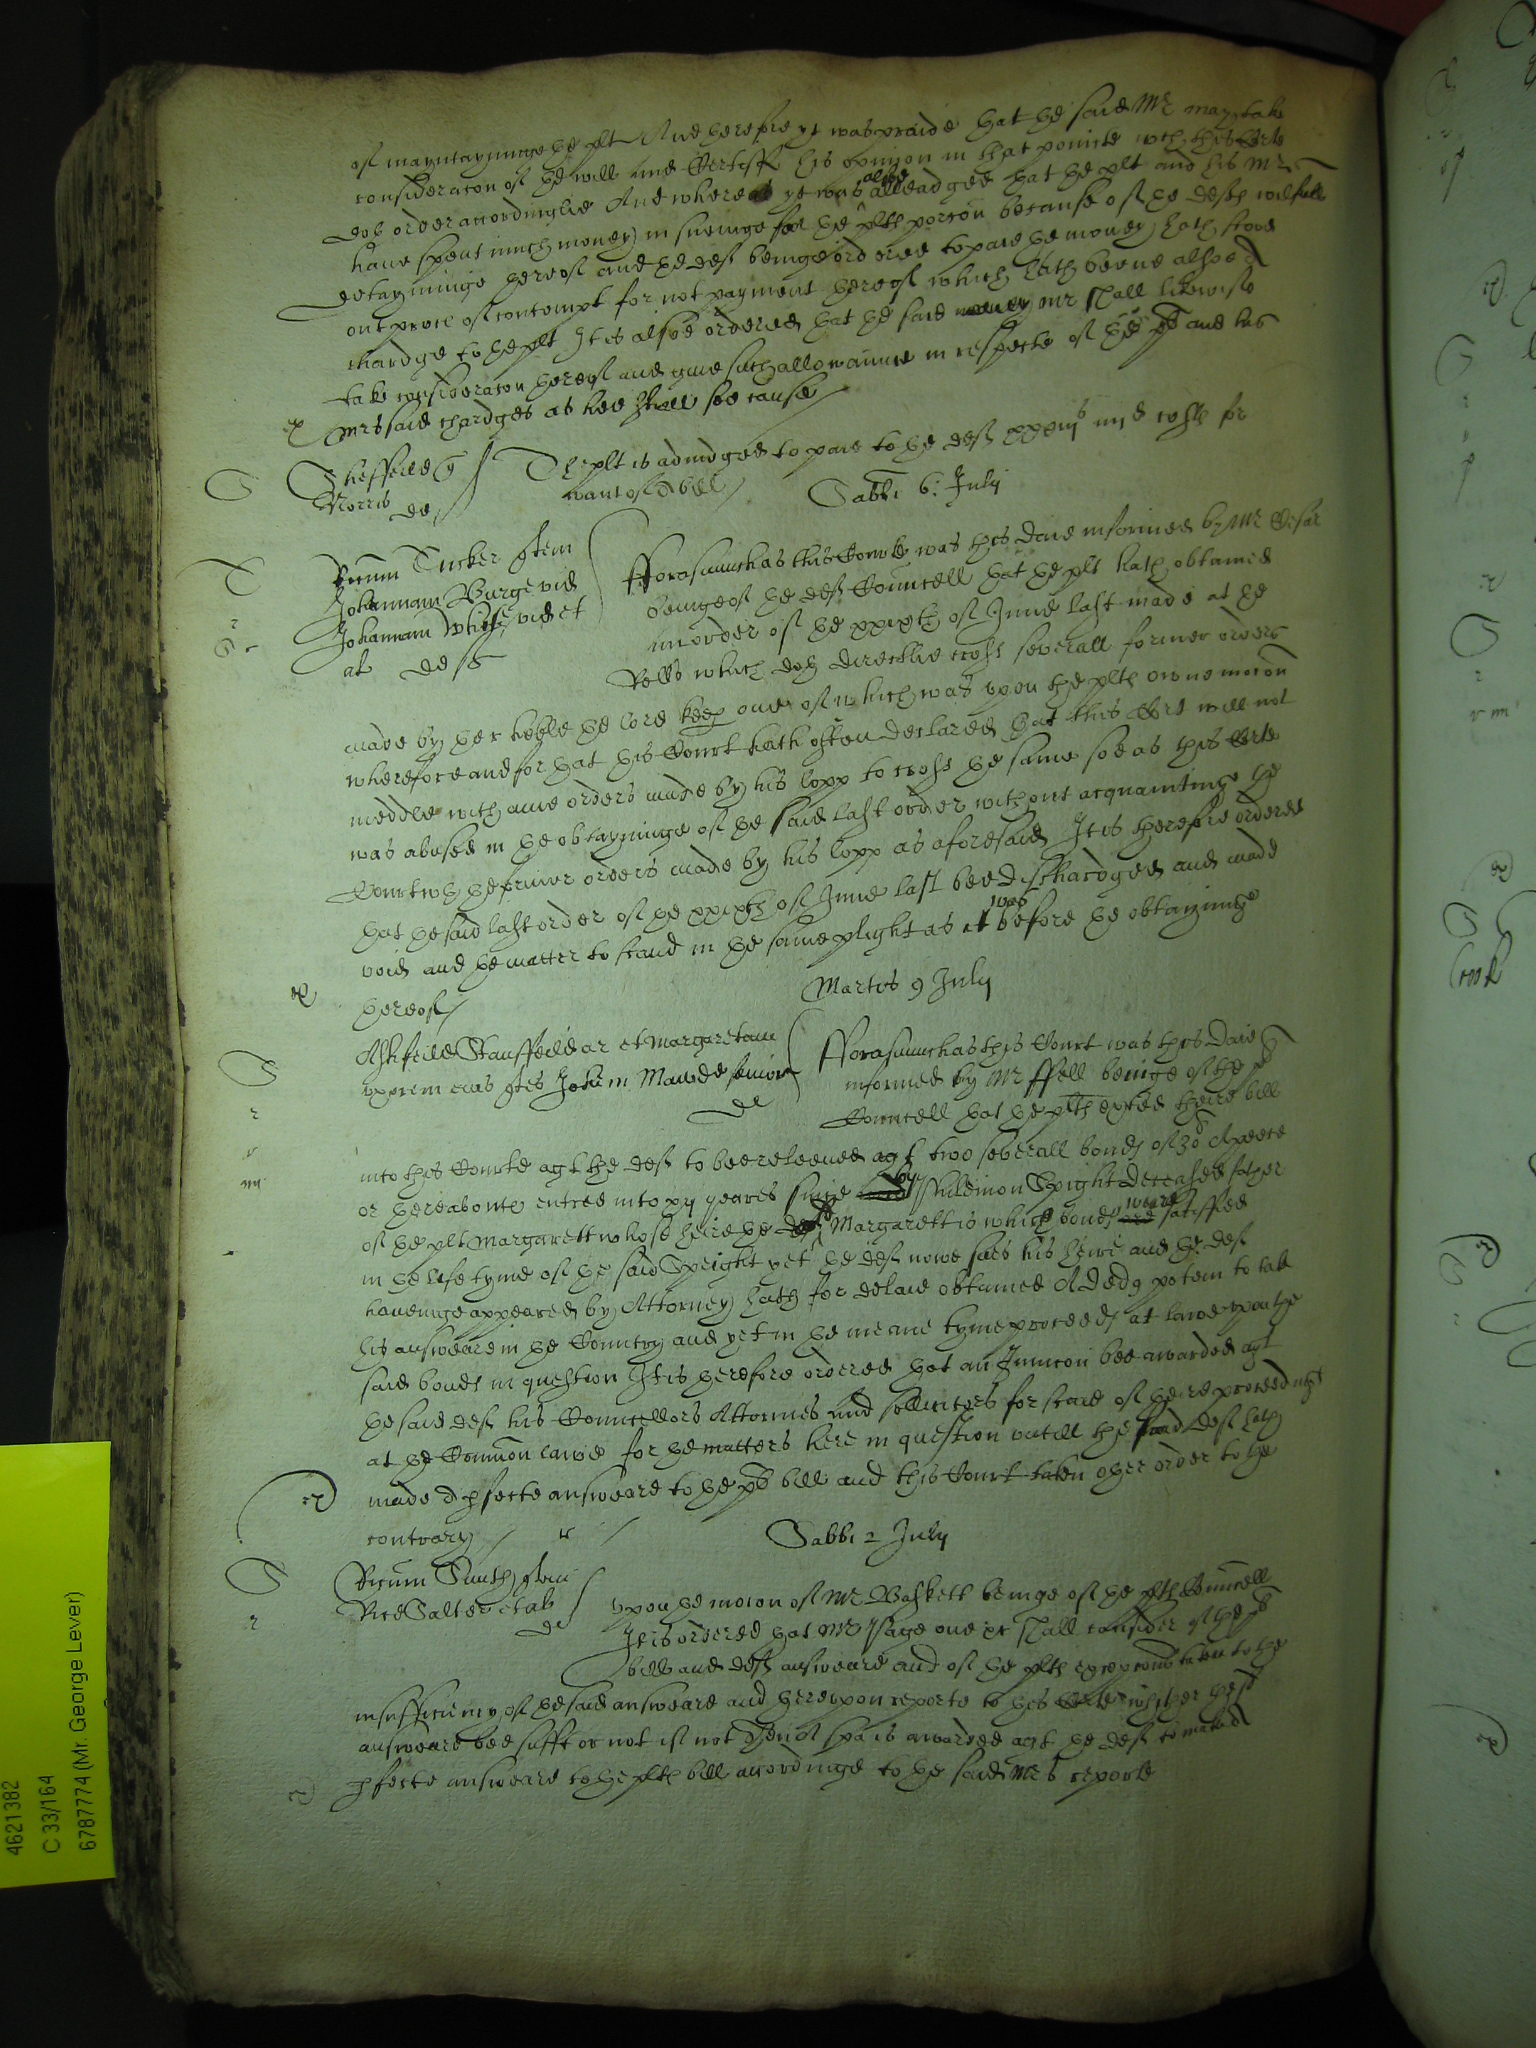 of mayntayninge the plt And therefore yt was praide that the said Mr may take
consideracon of the will and Certifie his opinion in that pointe wth this Corte
doth order accordinglie And whereas yt was alsoe alleadged that the plt and his Mr
have spent much money in sueinge for the plts porcon because of the defts wilfull
detayninge thereof and the deft beinge ordered to paie the money hath stood
out proces of contempt for not payment thereof which hath beene alsoe a
chardge to the plt It is alsoe ordered that the said Mr shall likewise
take consideracon thereof and give such allowaunce in respecte of the pt and his
Mrs said chardges as hee shall see cause
Sheffeild
Norris de
The plt is adiudged to paie to the deft xxxiijs iiijd costs for
want of a bill
Sabbi 6. July
Ricum Tucker gen
Johannam Burge vid
Johannam White vid et
al defts
fforasmuch as this Courte was this daie informed by Mr Cesar
beinge of the defts Councell that the plt hath obtained
an order of the xxixth of June last made at the
Rolls which doth directlie crosse severall former orders
made by the right honoble the lord keep one of which was upon the plts owne mocon
wherefore and for that this Court hath often declared that this Cort will not
meddle with anie orders made by his lopp to crosse the same soe as this Corte
was abused in the obtayninge of the said last order without acquaintinge the
Court wth the former orders made by his lopp as aforesaid It is therefore ordered
that the said last order of the xxixth of June last bee dischardged and made
void and the matter to stand in the same plight as it was before the obtayninge
thereof
Martis 9 July
Ashfeild Stanffeild ar et Margaretam
uxorem eius qtes Johem Mawde senior
de
fforasmuch as this Court was this Daie
informed by Mr ffell beinge of the pts
Councell that the plts exhited theire bill
into this Courte agt the deft to bee releeved agt two severall bonds of 30l A peece
or thereabouts entred into xij yeares since by Philemon Speight deceased father
of the plt Margarett whose heire the sd Margarett is which bonds weare satisfied
in the life tyme of the said Speight yet the deft nowe sues his heire and the deft
haveinge appeared by Attorney hath for delaie obtained A ded potem to take
his answeare in the Country and yet in the meane tyme proceeds at lawe upon the
said bonds in question It is therefore ordered that an Iniuncon bee awarded agt
the said deft his Councellors Attornies and solliciters for staie of theire proceedings
at the Common lawe for the matters here in question untill the said deft hath
made a pfecte answeare to the pts bill and this Court taken other order to the
contrary
Sabbi 2 July
Ricum Smith gen
Rice Salter et al
de
Upon the mocon of Mr Baskett beinge of the plts Councell
It is ordered that Mr Page one etc shall consider of the pts
bill and defts answeare and of the plts excepcons taken to the
insufficiency of the said answeare and thereupon reporte to this Corte whither the sd
answeare bee suffic or not if not then a spa is awarded agt the deft to make a
pfecte answeare to the plts bill accordinge to the said Mrs reporte
4621382
C 33/164
6787774 (Mr. George Lever)